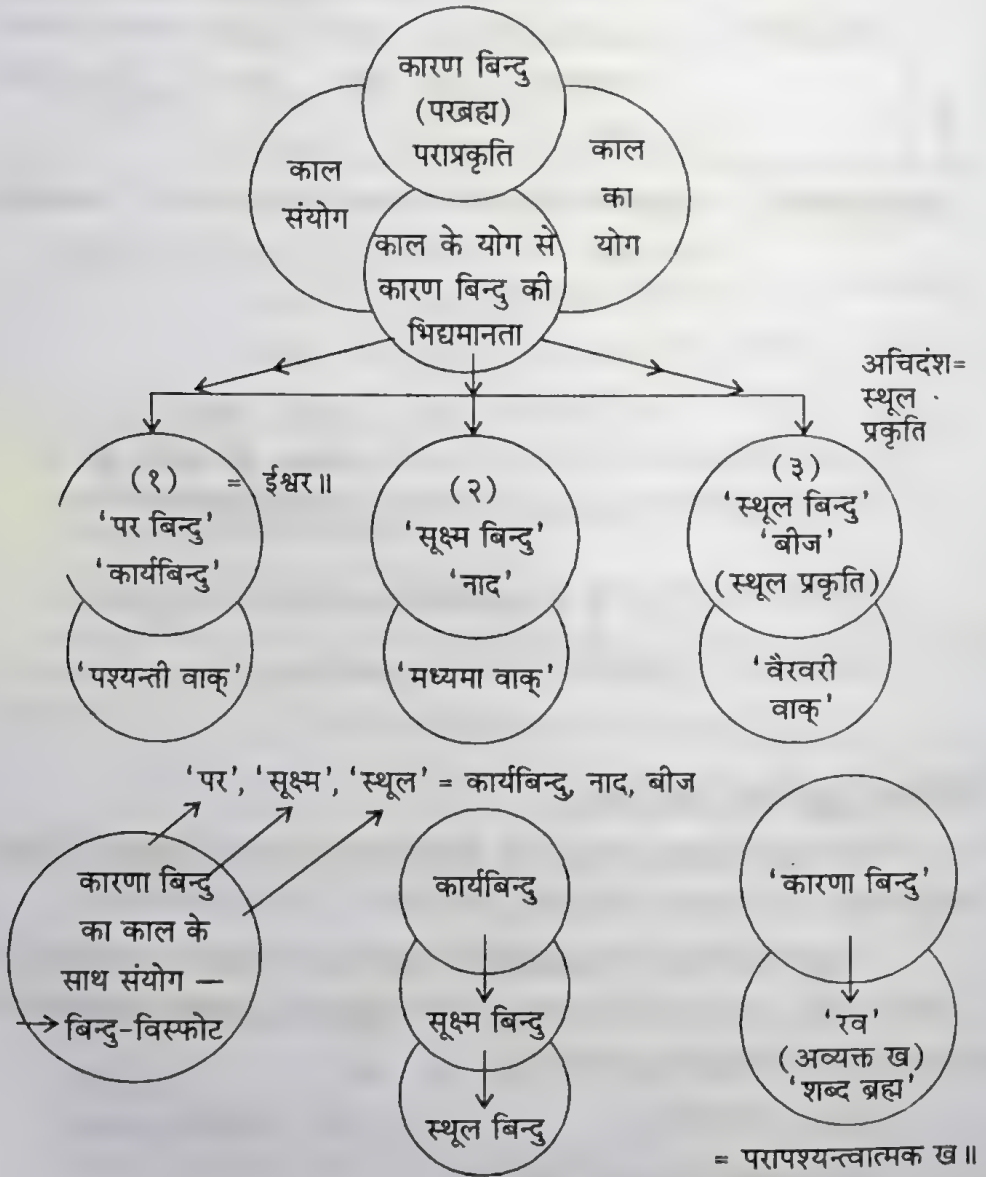 कारण बिन्दु
(परब्रह्म)
पराप्रकृति
काल
संयोग
काल
का
योग
काल के योग से
कारण बिन्दु की
भिद्यमानता
अचिदंश=
स्थूल
प्रकृति
(१) = ईश्वर॥
'पर बिन्दु'
'कार्यबिन्दु'
'पश्यन्ती वाक्'
(२)
'सूक्ष्म बिन्दु'
'नाद'
'मध्यमा वाक्'
(३)
'स्थूल बिन्दु'
'बीज'
(स्थूल प्रकृति)
'वैरवरी
वाक्'
'पर', 'सूक्ष्म', 'स्थूल' = कार्यबिन्दु, नाद, बीज
कारणा बिन्दु
का काल के
साथ संयोग —
बिन्दु-विस्फोट
कार्यबिन्दु
सूक्ष्म बिन्दु
स्थूल बिन्दु
'कारणा बिन्दु'
'रव'
(अव्यक्त ख)
'शब्द ब्रह्म'
= परापश्यन्त्वात्मक ख॥